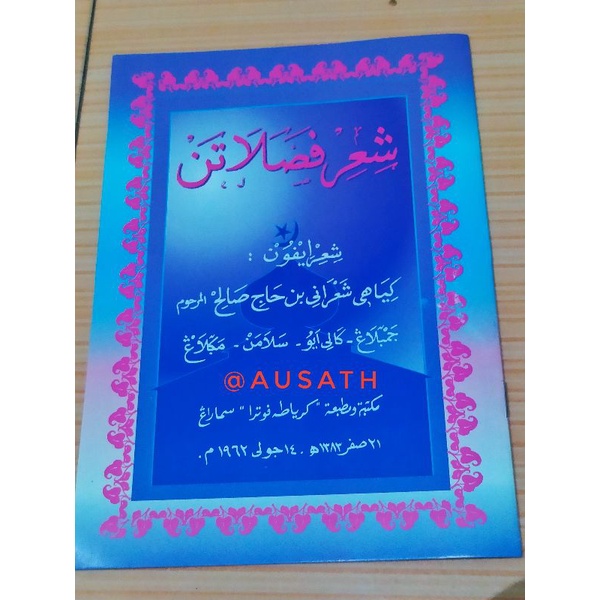 شِعِرْ فَصَلَاتَنْ
شِعِرْ إيفُوْن :
كِيَاهِي شَعْرَانِي بن حَاجّ صَالِحْ المرحوم
جَمْبَلَاڠْ - كَالِي أبُو - سَلَامَنْ - مَڮْلَاڠْ
@AUSATH
مكتبة ومطبعة "كرياطه فوترا" سماراڠ
٢١ صفر ١٣٨٢ هـ . ١٤ جولى ١٩٦٢ م .